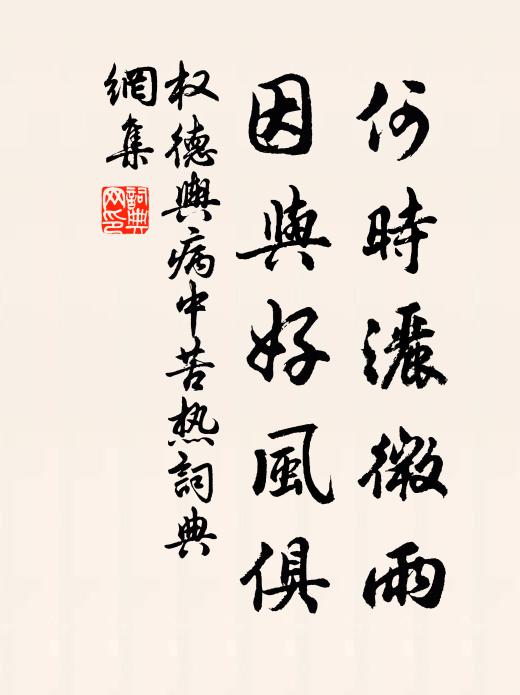 何時灑微雨
因與好風俱
权德輿病中苦热詞典
網集
詞典
网印